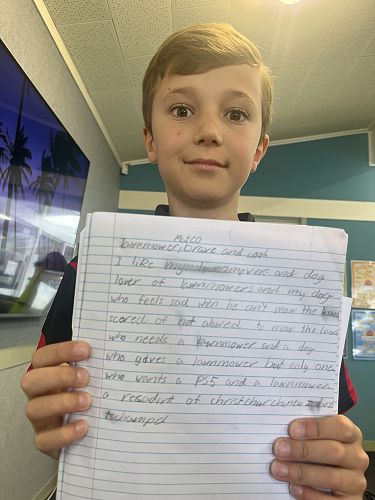 Mateo
lawnmower, brave and cooh
I like mowers and dog
lover of lawnmowers and my dog
who feels sad wen he can't mow the
scored of not alowed to mow the law
who needs a lawnmower and a dog
who gaves a lawnmower but only one
who wants a PS5 and a lawnmower
a resadint of christchurch new